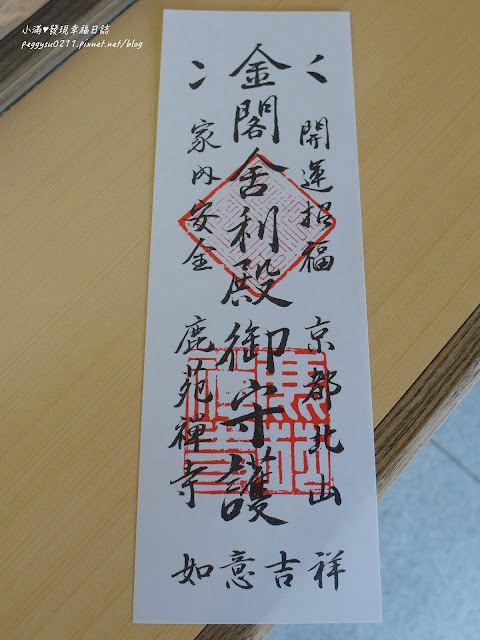 小滿♥發現幸福日誌
peggysu0211.pixnet.net/blog
開運招福 京都北山
金閣舎利殿御守護
家内安全 鹿苑禅寺
如意吉祥